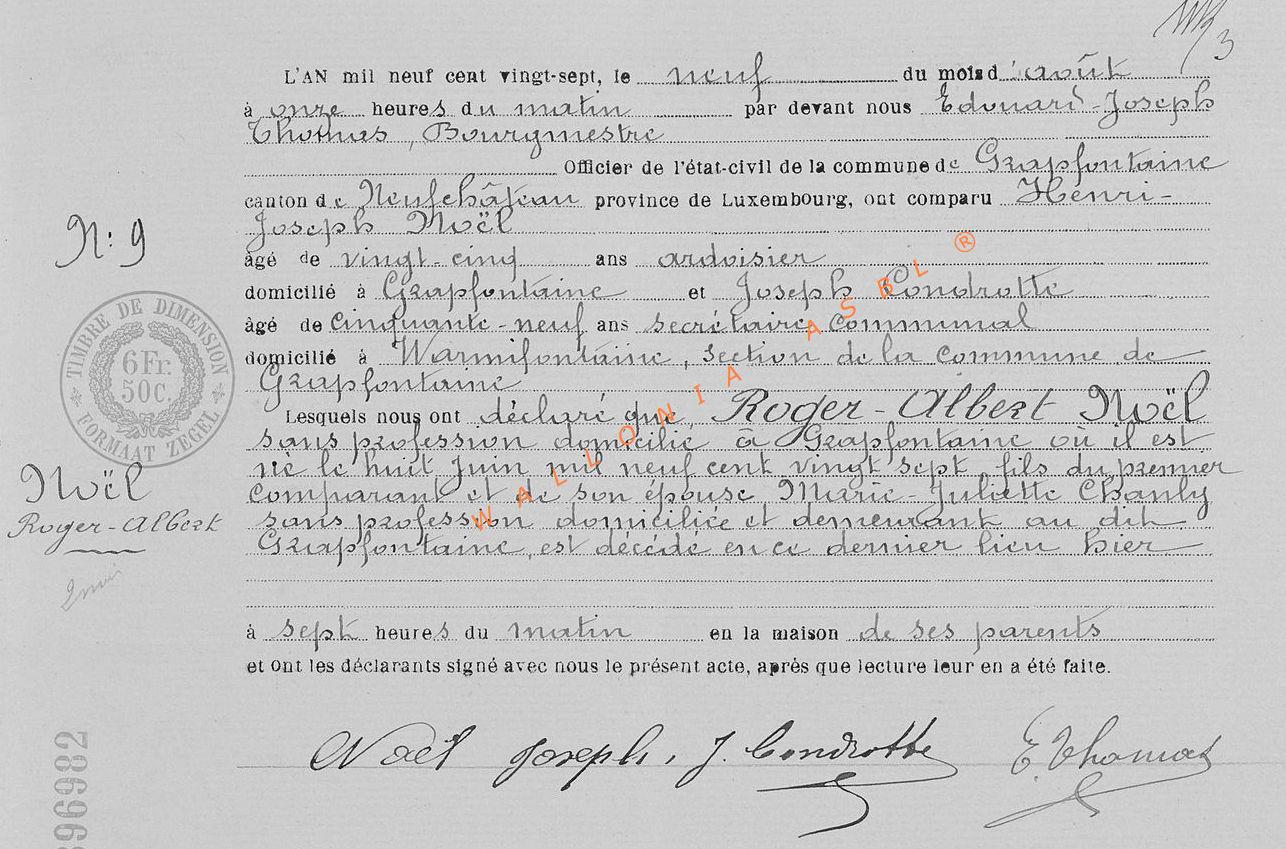 3
L'AN mil neuf cent vingt-sept, le neuf du mois d'août
à onze heures du matin par devant nous Edouard-Joseph
Thomas, Bourgmestre
Officier de l'état-civil de la commune de Grapfontaine
canton de Neufchâteau province de Luxembourg, ont comparu Henri-
Joseph Noël
N: 9
âgé de vingt-cinq ans ardoisier
domicilié à Grapfontaine et Joseph Condrotte
âgé de cinquante-neuf ans secrétaire communal
domicilié à Warmifontaine, section de la commune de
Grapfontaine
TIMBRE DE DIMENSION
6Fr.
50c.
FORMAAT ZEGEL
Lesquels nous ont déclaré que, Roger-Albert Noël
sans profession domicilié à Grapfontaine où il est
né le huit Juin mil neuf cent vingt sept, fils du premier
comparant et de son épouse Marie-Juliette Chanly
sans profession domiciliée et demeurant au dit
Grapfontaine, est décédé en ce dernier lieu hier
Noël
Roger-Albert
à sept heures du matin en la maison de ses parents
et ont les déclarants signé avec nous le présent acte, après que lecture leur en a été faite.
Noël Joseph. J. Condrotte E. Thomas
896982
WALLONIA ASBL ®